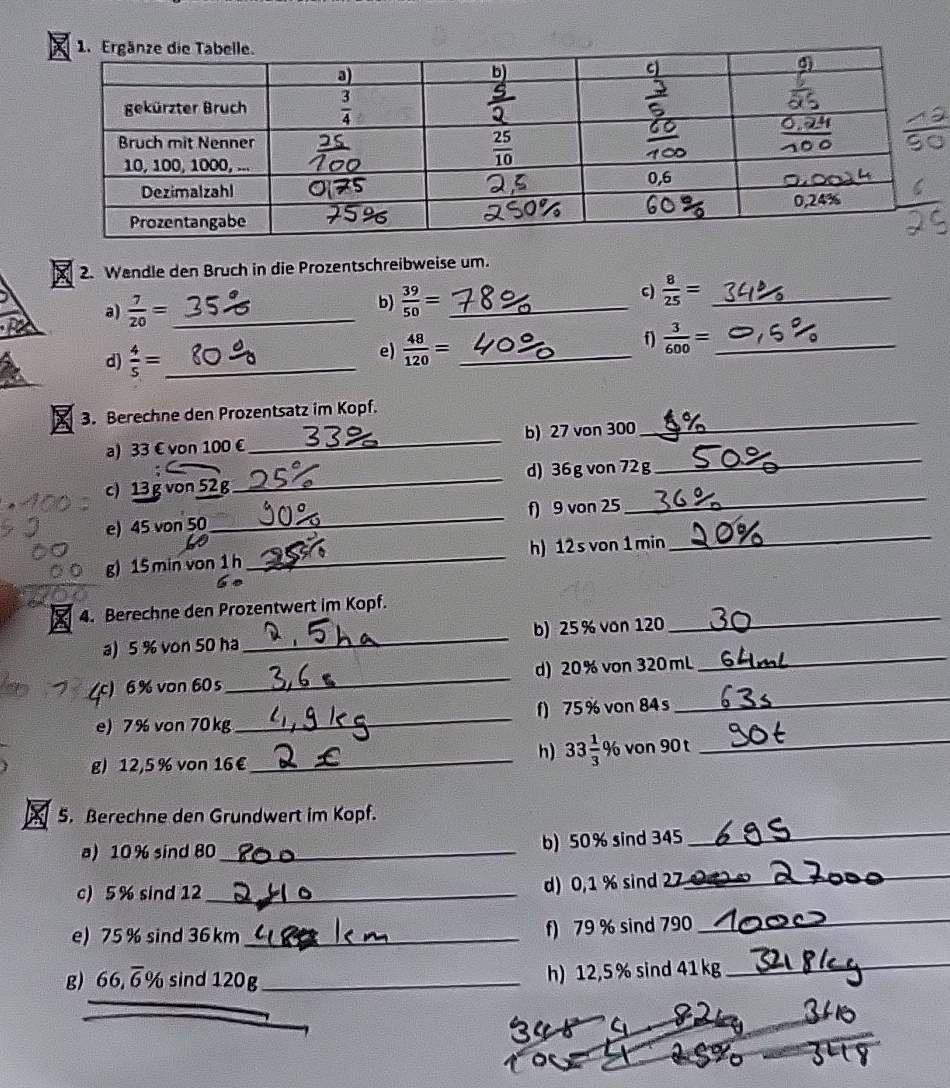 1. Ergänze die Tabelle.
a) b) c) d)
gekürzter Bruch 3/4 5/2 3/5 6/25
Bruch mit Nenner 10, 100, 1000, ... 25/100 25/10 60/100 0.24/100 12/50
Dezimalzahl 0,75 2,5 0,6 0.0024 6/25
Prozentangabe 75% 250% 60% 0,24%
2. Wandle den Bruch in die Prozentschreibweise um.
a) 7/20 = 35% b) 39/50 = 78% c) 8/25 = 34%
d) 4/5 = 80% e) 48/120 = 40% f) 3/600 = 0,5%
3. Berechne den Prozentsatz im Kopf.
a) 33 € von 100 € 33% b) 27 von 300 %
c) 13 g von 52 g 25% d) 36 g von 72 g 50%
e) 45 von 50 90% f) 9 von 25 36%
60
g) 15 min von 1 h 25% h) 12 s von 1 min 20%
60
4. Berechne den Prozentwert im Kopf.
a) 5 % von 50 ha 2.5 ha b) 25 % von 120 30
c) 6 % von 60 s 3,6 s d) 20 % von 320 mL 64ml
e) 7 % von 70 kg 4,9 kg f) 75 % von 84 s 63s
g) 12,5 % von 16 € 2 € h) 33 1/3 % von 90 t 90t
5. Berechne den Grundwert im Kopf.
a) 10 % sind 80 800 b) 50 % sind 345 695
c) 5 % sind 12 240 d) 0,1 % sind 27 27000
e) 75 % sind 36 km km f) 79 % sind 790 1000
g) 66,6̅ % sind 120 g h) 12,5 % sind 41 kg 328 kg
82kg
25%